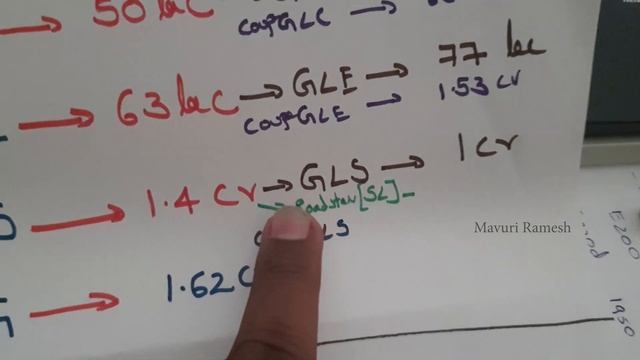 50 lac
coupGLC →
63 lac → GLE → 77 lac
coupGLE → 1.53 cr
→ 1.4 Cr → GLS → 1 Cr
→ Roadster [SL] -
LS
→ 1.62 C
Mavuri Ramesh
E200
1950